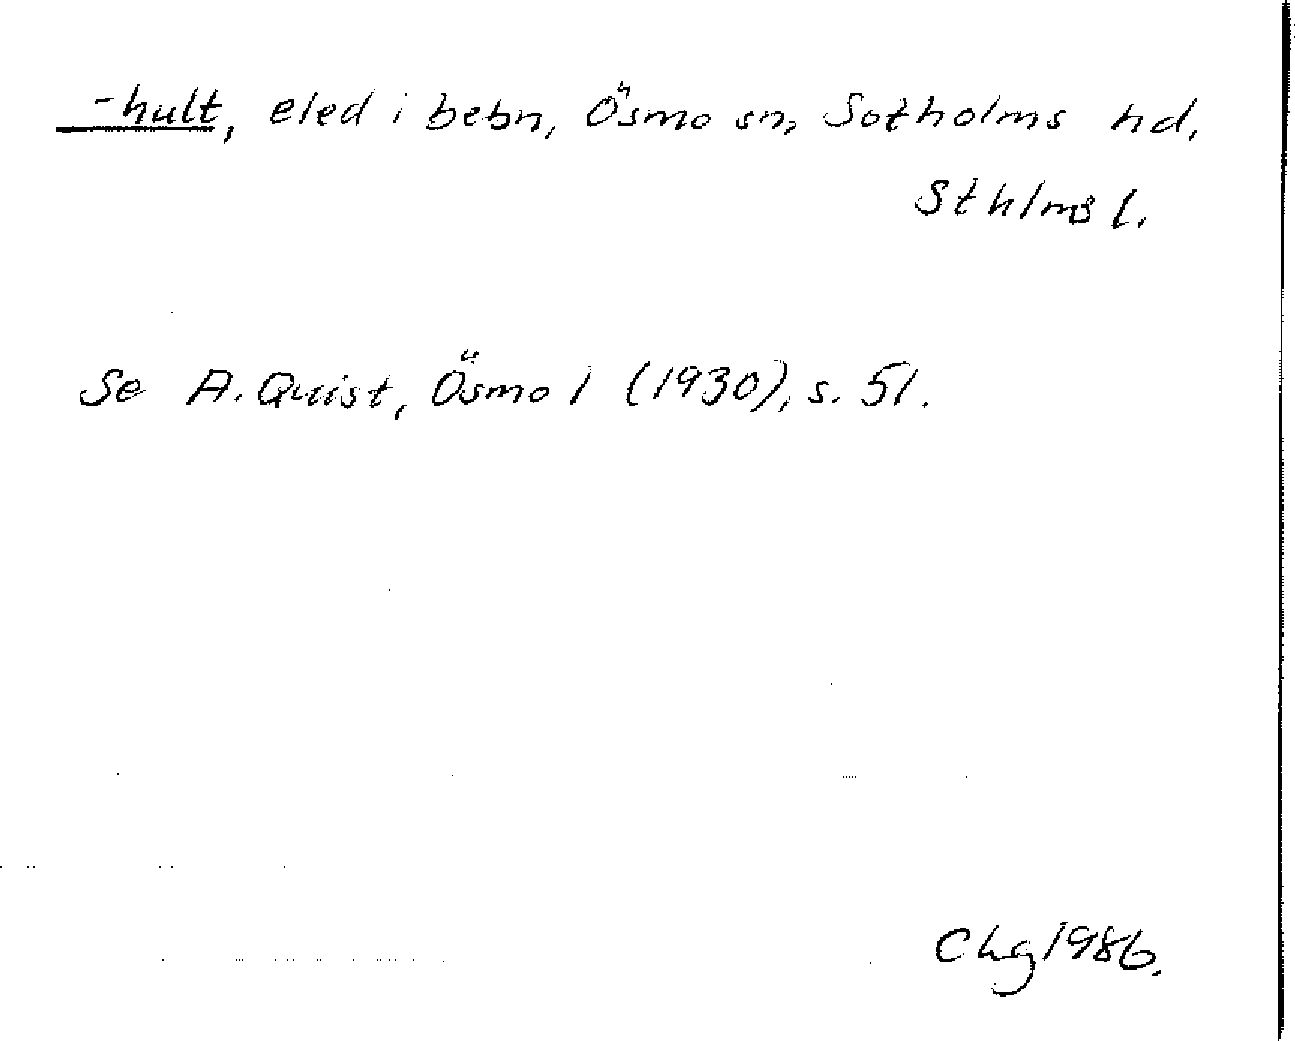 -hult, eled i bebn, Ösmo sn, Sotholms hd,
Sthlms l.
Se A. Quist, Ösmo 1 (1930), s. 51.
Chg 1986.